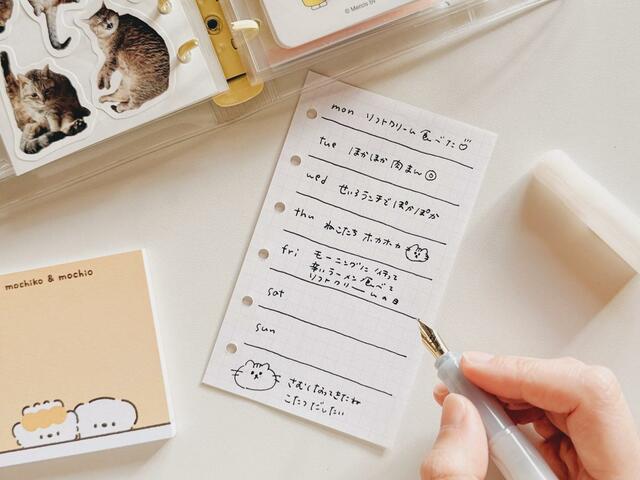 © Mercis bv
mon ソフトクリーム食べた
tue ほかほか肉まん
wed せいろランチでぽかぽか
thu ねこたち ホカホカ
fri モーニングに行って
辛いラーメン食べて
ソフトクリーム
sat
sun
さむくなってきたね
こたつだしたい
mochiko & mochio